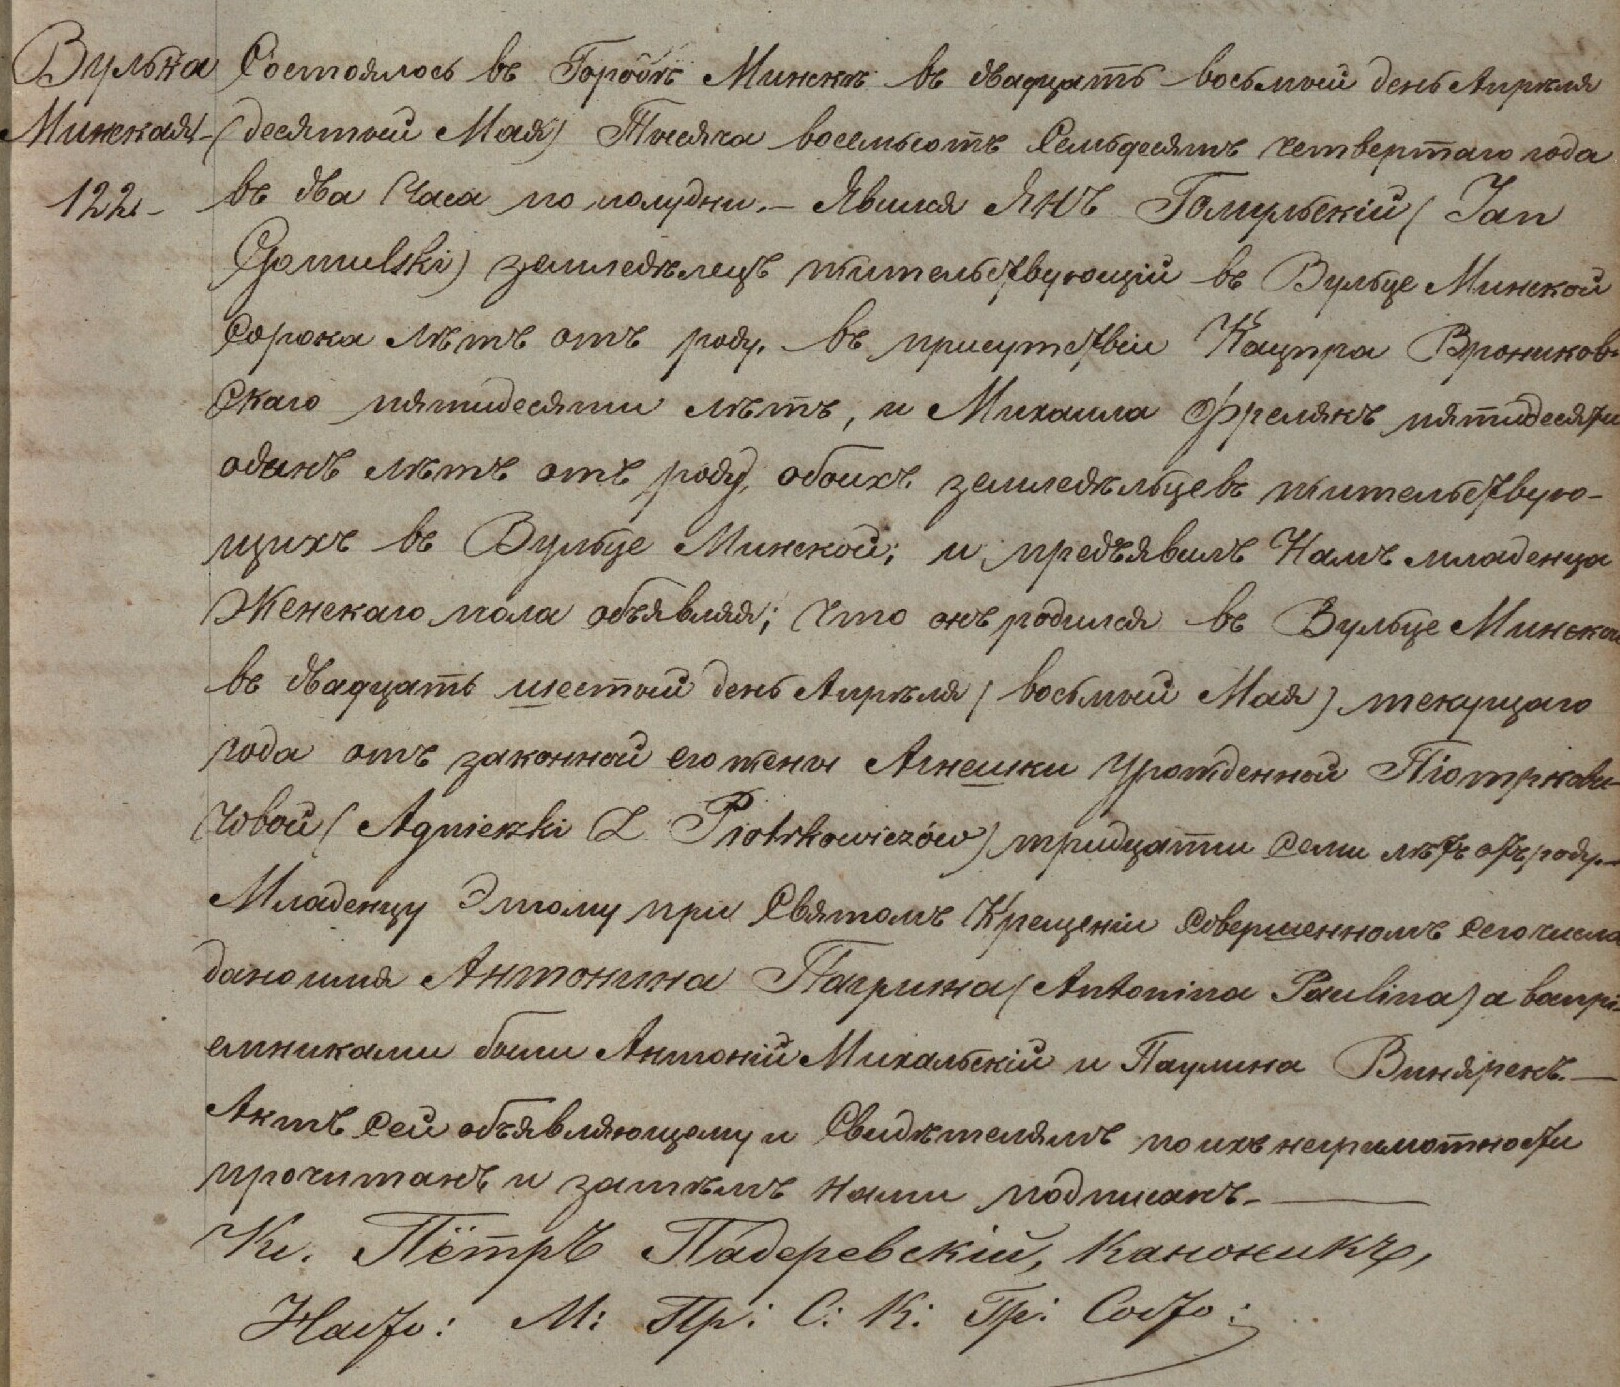 Вулька
Минская
122
Состоялось въ Городѣ Минскѣ въ двадцать восьмый день Апрѣля
(десятый Мая) Тысяча восемьсотъ Семьдесятъ четвертаго года
въ два Часа по полудни. – Явился Янъ Гомульскій (Jan
Gomulski) земледѣлецъ жительствующій въ Вульце Минской
Сорока лѣтъ отъ роду, въ присутствіи Кацпра Вроников-
Скаго пятидесяти лѣтъ, и Михаила Фрелякъ пятидесяти
одинъ лѣтъ отъ роду, обоихъ земледѣльцевъ жительствую-
щихъ въ Вульце Минской; и предъявилъ Намъ младенца
Женскаго пола объявляя; что онъ родился въ Вульце Минской
въ двадцать шестый день Апрѣля (восьмый Мая) текущаго
года отъ законной его жены Агнешки урожденной Піотркови-
човой (Agnieszki Z Piotrkowiczów) тридцати семи лѣтъ отъ роду. –
Младенцу Этому при Святомъ Крещеніи Совершенномъ Сего числа
дано имя Антонина Паулина (Antonina Paulina) а воспрі-
емниками были Антоній Михальскій и Паулина Винярекъ. –
Актъ Сей объявляющему и Свидѣтелямъ по ихъ неграмотности
прочитанъ и затѣмъ Нами подписанъ. –
Кс. Пётръ Падеревскій, Каноникъ,
Насто: М: Пр: С: К: Гр: Состо: